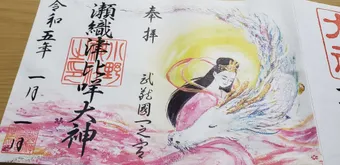 奉拝
武蔵國一之宮
瀬織津比咩大神
令和五年一月一日